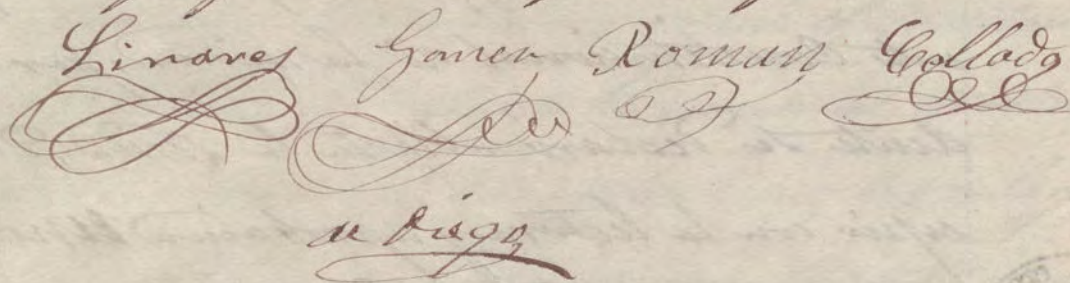 Linares Roman Collado
de Diego